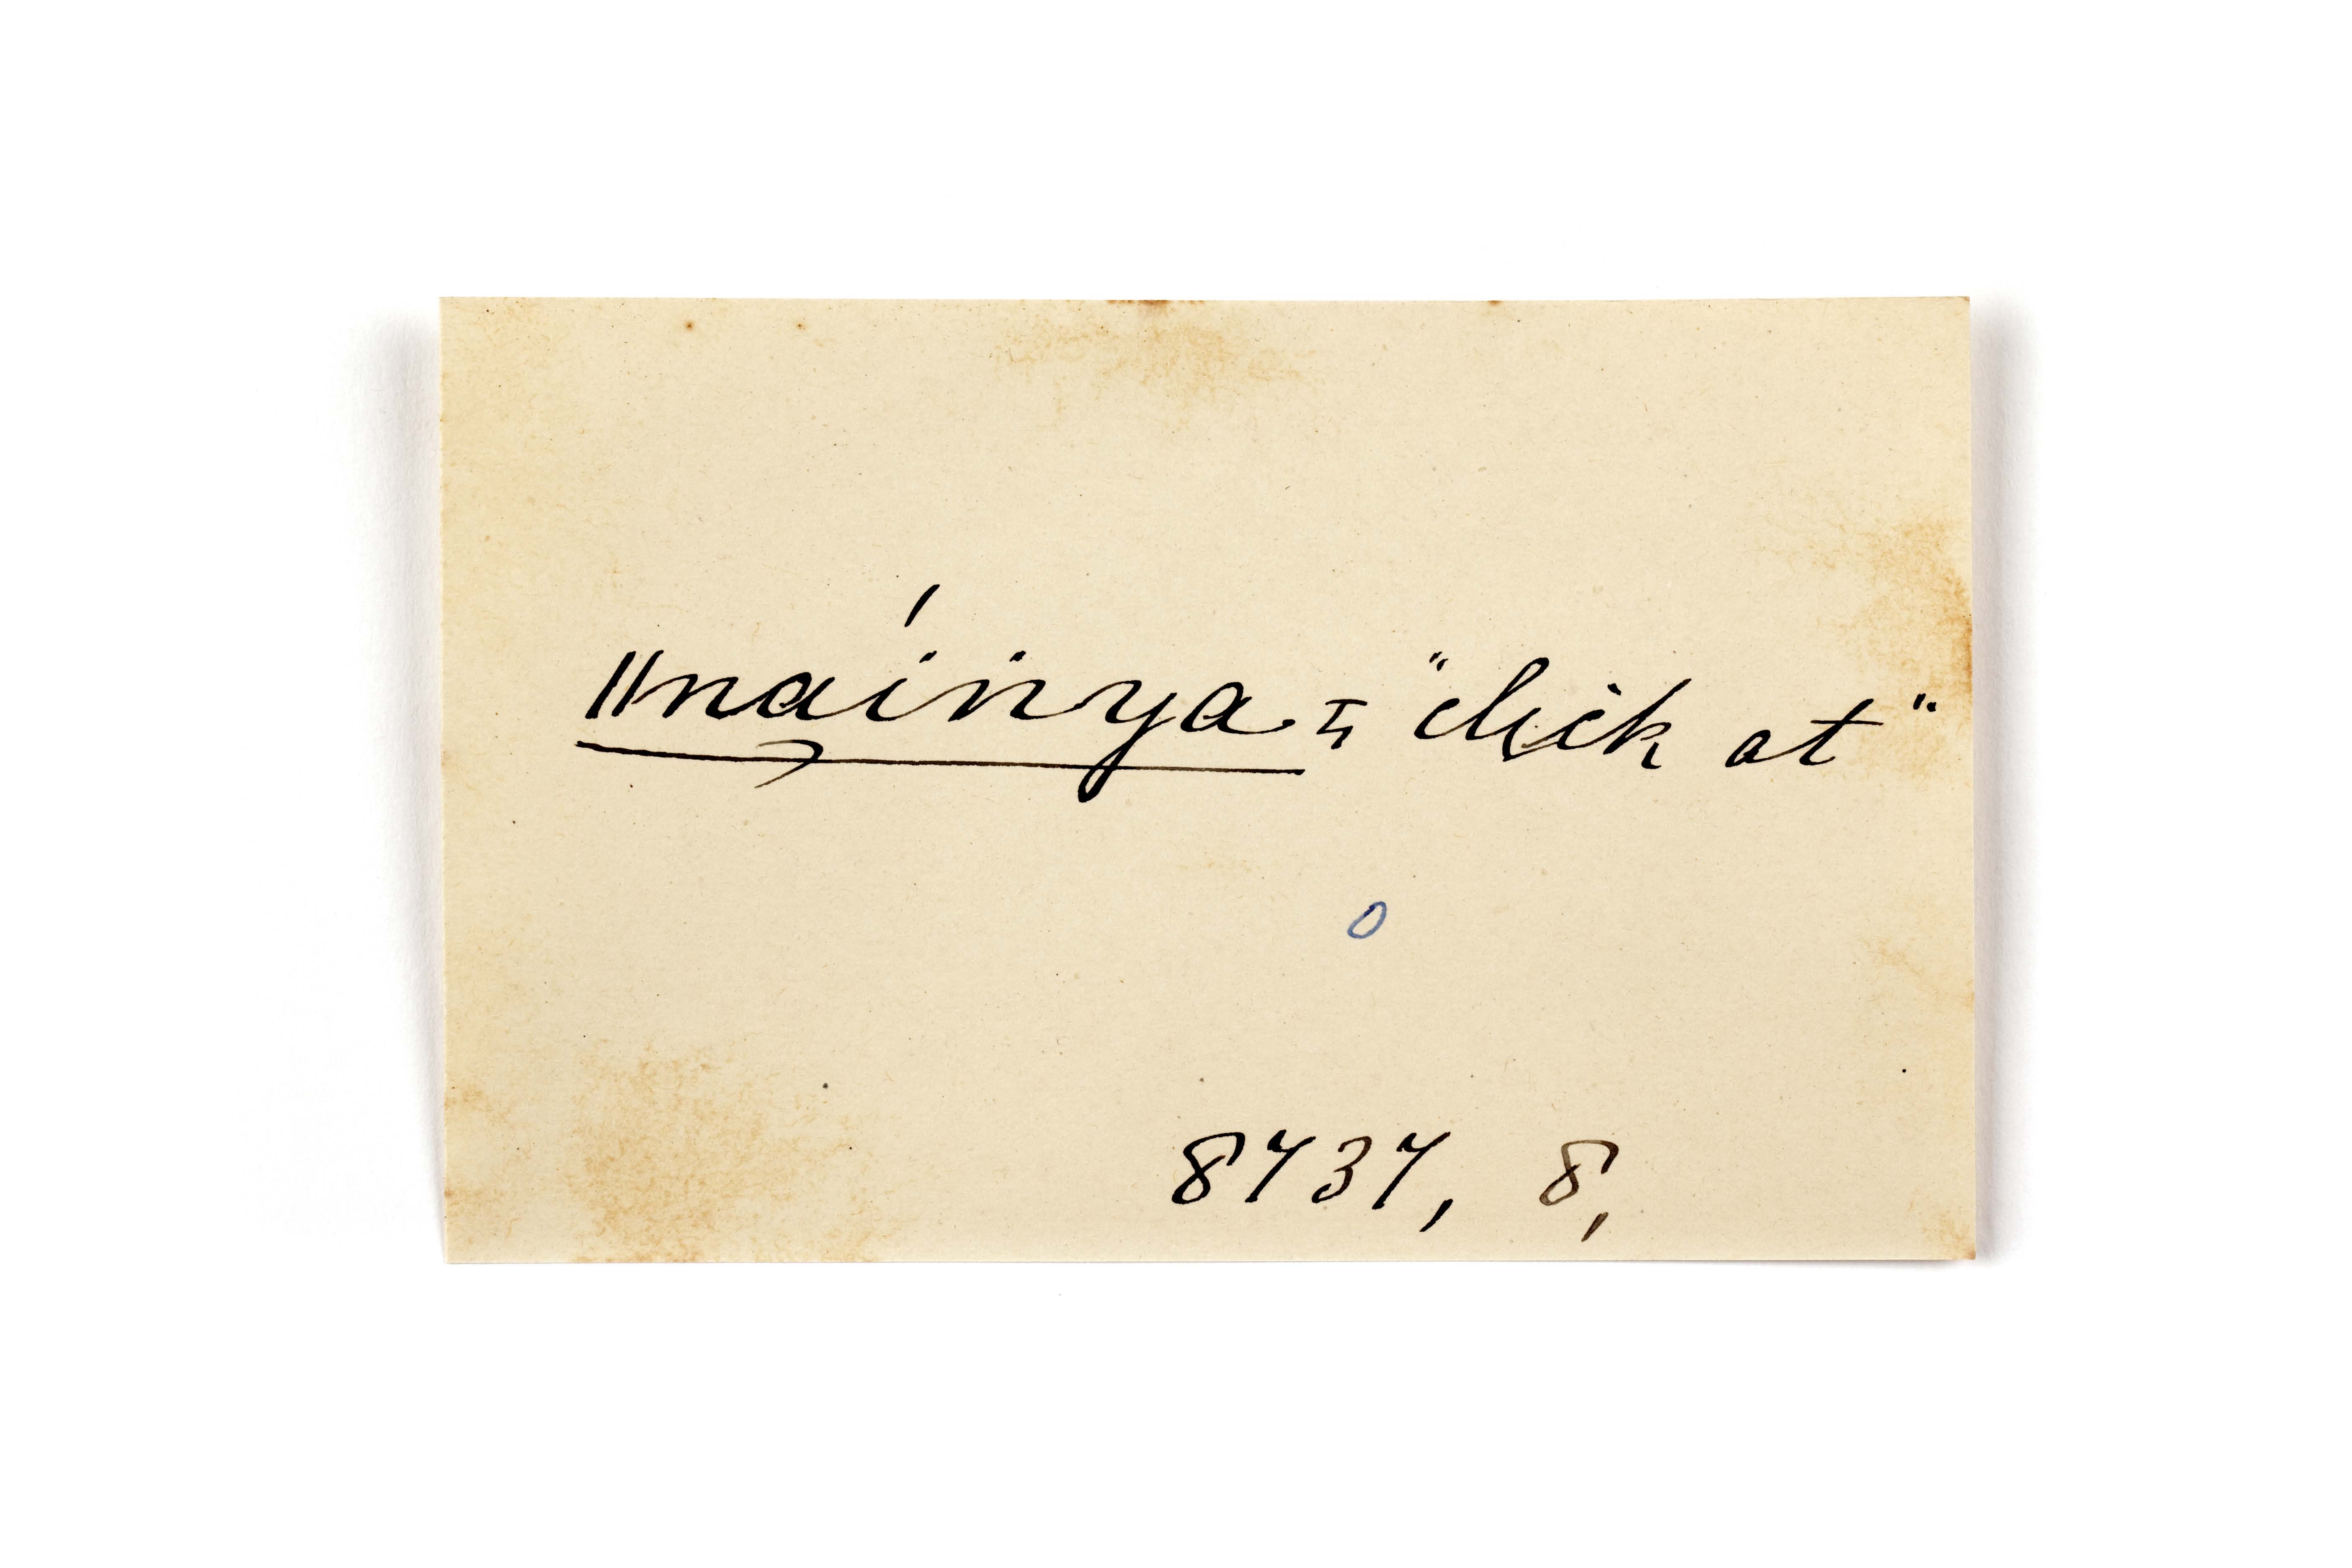 ǁnaiṅya = "click at"
0
8737, 8,